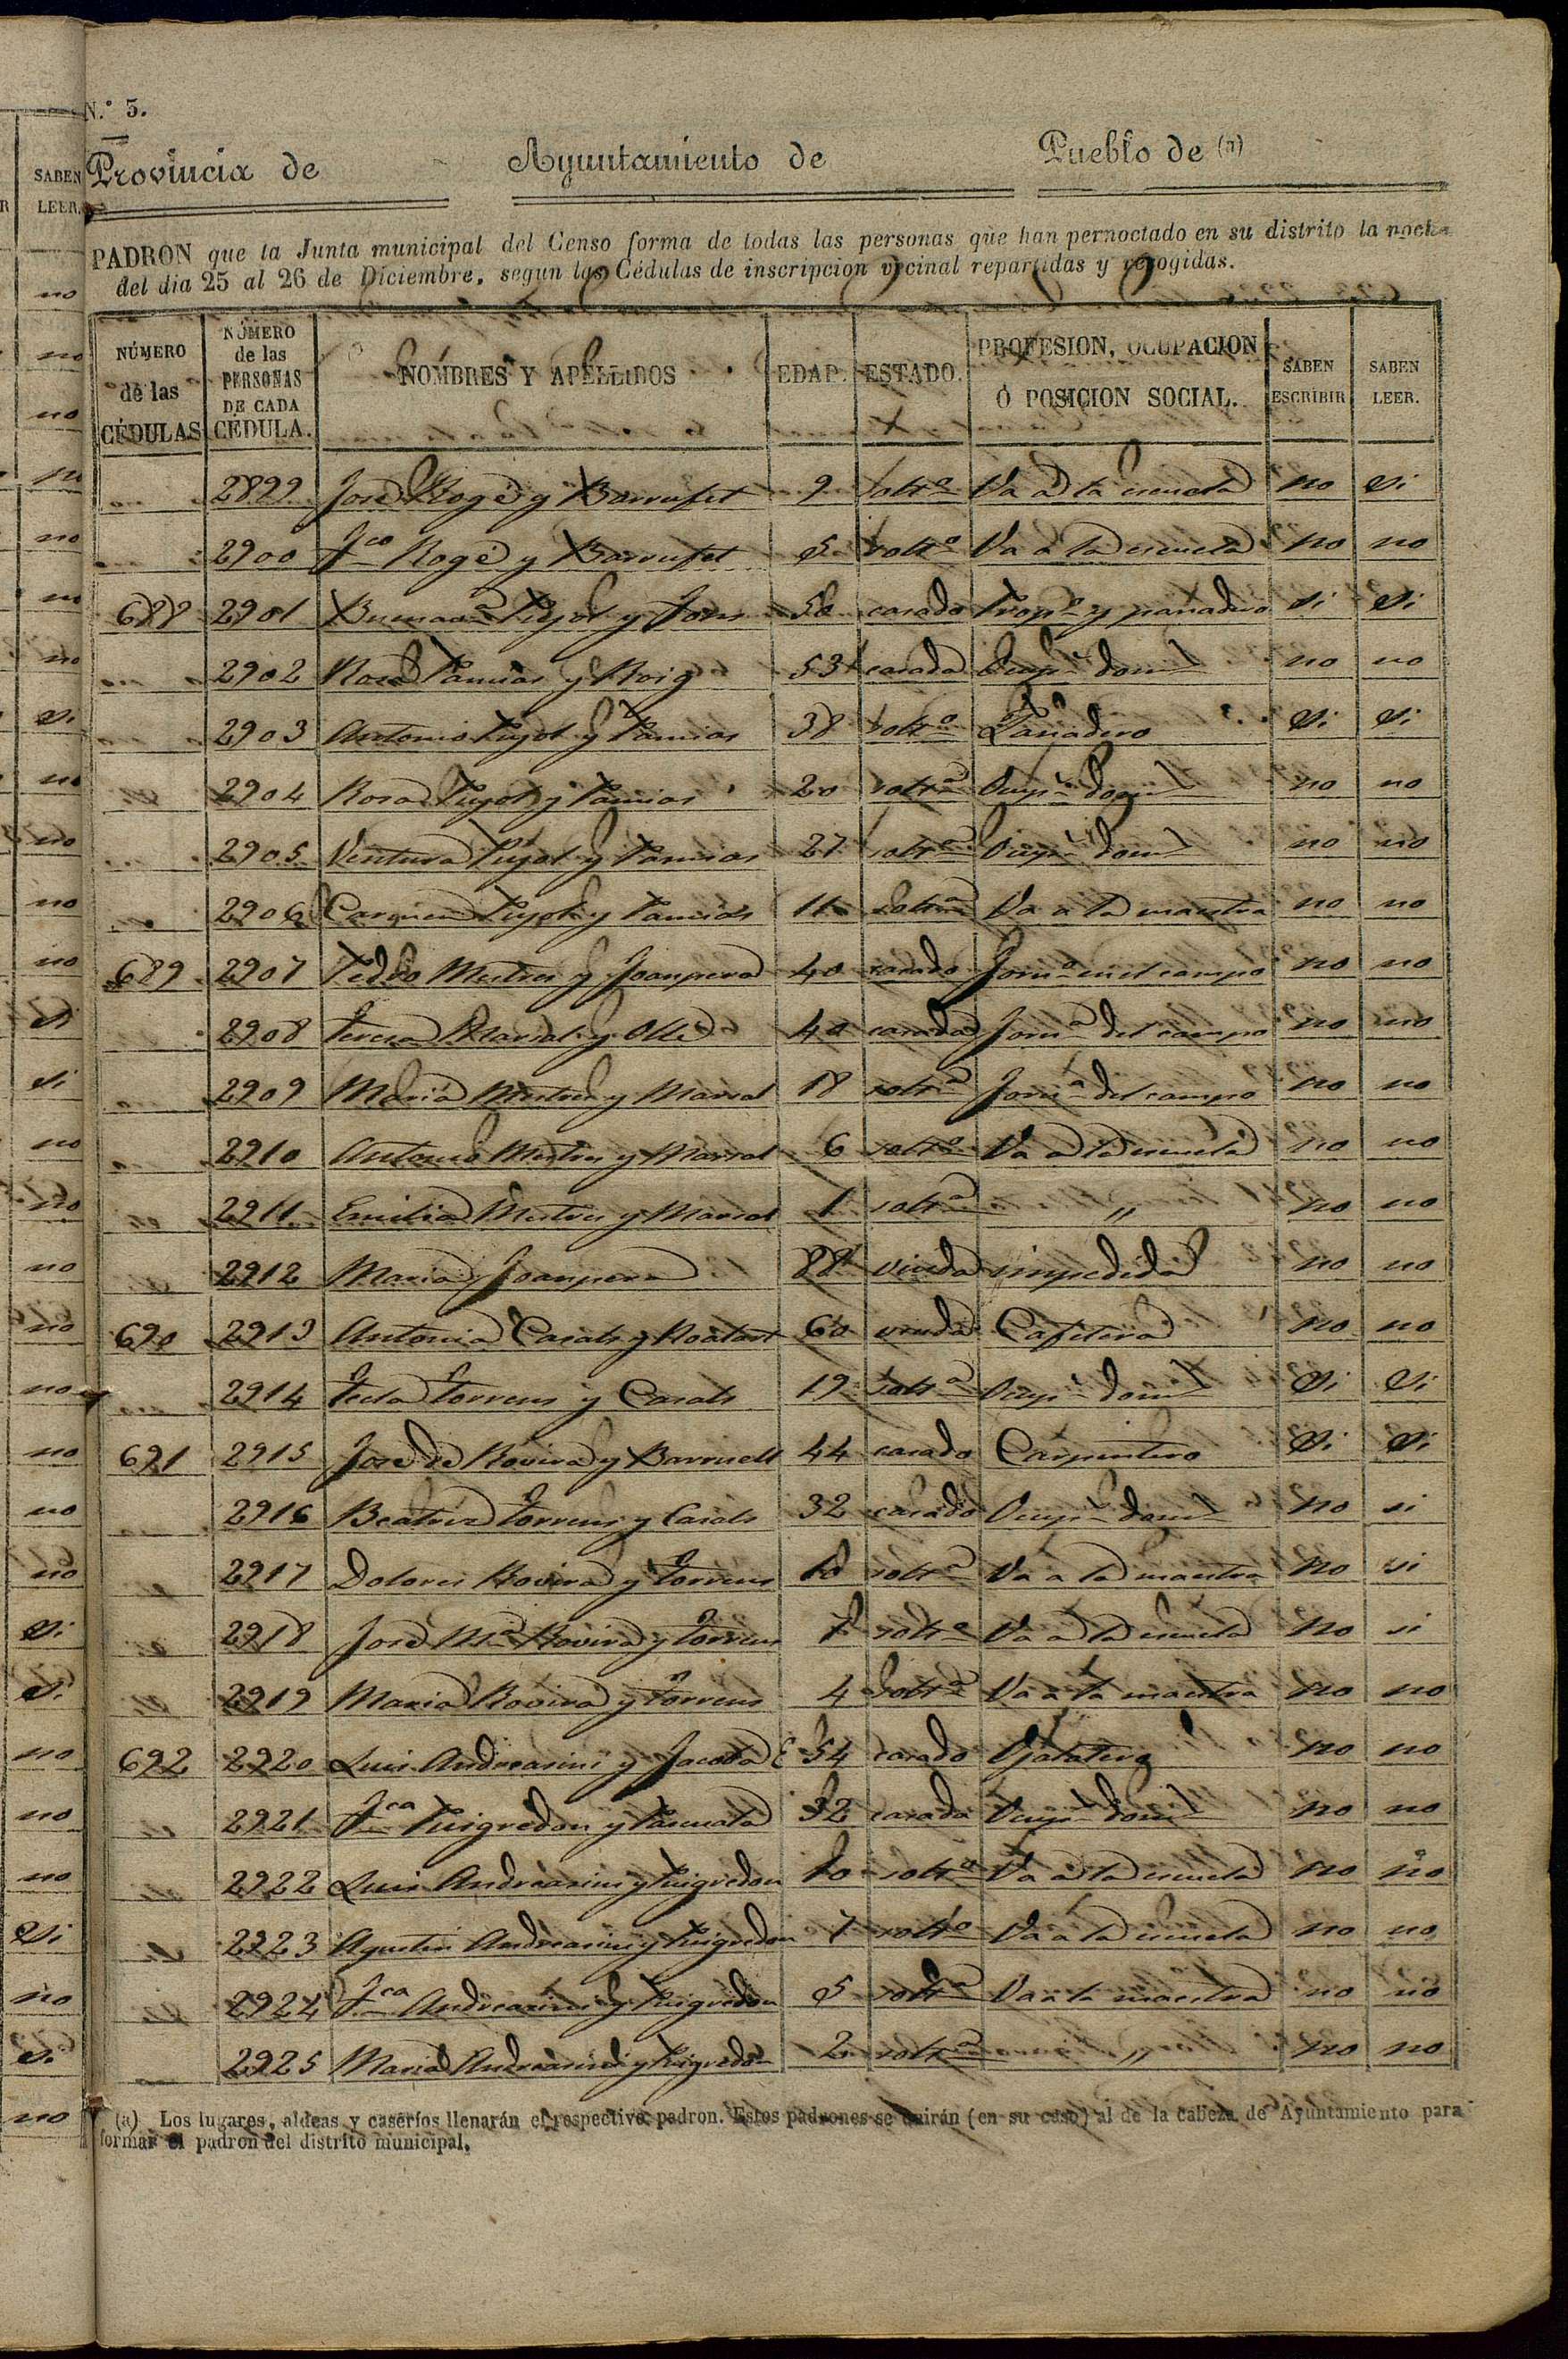 N.º 3.
Provincia de Ayuntamiento de Pueblo de (a)
PADRON que la Junta municipal del Censo forma de todas las personas que han pernoctado en su distrito la noche
del dia 25 al 26 de Diciembre, segun las Cédulas de inscripcion vecinal repartidas y recogidas.
NÚMERO de las CÉDULAS NÚMERO de las PERSONAS DE CADA CÉDULA. NOMBRES Y APELLIDOS EDAD. ESTADO. PROFESION, OCUPACION Ó POSICION SOCIAL. SABEN ESCRIBIR SABEN LEER.
2899 José Rogé y Barrufet 9 solto Va a la escuela no Si
2900 Fco Rogé y Barrufet 5 solto Va a la escuela no no
688 2901 Buenava Pujol y Fons 56 casado Propo y panadero Si Si
2902 Rosa Pamias y Roig 53 casada Ocupn doml no no
2903 Antonio Pujol y Pamias 38 solto Panadero Si Si
2904 Rosa Pujol y Pamias 20 solta Ocupn doml no no
2905 Ventura Pujol y Pamias 27 solta Ocupn doml no no
2906 Carmen Pujol y Pamias 11 solta Va a la maestra no no
689 2907 Pedro Mestres y Joanpera 40 casado Joro en el campo no no
2908 Teresa Marsal y Ollé 40 casada Jorna del campo no no
2909 Maria Mestres y Marsal 18 solta Jorna del campo no no
2910 Antonio Mestres y Marsal 6 solto Va a la escuela no no
2911 Emilia Mestres y Marsal 1 solta " no no
2912 Maria y Joanpera 88 viuda impedida no no
690 2913 Antonia Casals y 60 viuda Cafetera no no
2914 Tecla Torrens y Casals 19 solta Ocupn doml Si Si
691 2915 José de Rovira y Barruell 44 casado Carpintero Si Si
2916 Beatriz Torrens y Casals 32 casado Ocupn doml no si
2917 Dolores Rovira y Torrens 10 solta Va a la maestra no si
2918 José Ma Rovira y Torrens 7 solto Va a la escuela no si
2919 Maria Rovira y Torrens 4 solta Va a la maestra no no
692 2920 Luis Andreasini y 54 casado no no
2921 Fca Puigredon y Pascuala 32 casada Ocupn doml no no
2922 Luis Andreasini y Puigredon 10 solto Va a la escuela no no
2923 Agustin Andreasini y Puigredon 7 solto Va a la escuela no no
2924 Fca Andreasini y Puigredon 5 solta Va a la maestra no no
2925 Maria Andreasini y Puigredon 2 solta " no no
(a) Los lugares, aldeas y caseríos llenarán el respectivo padron. Estos padrones se unirán (en su caso) al de la cabeza de Ayuntamiento para
formar el padron del distrito municipal.